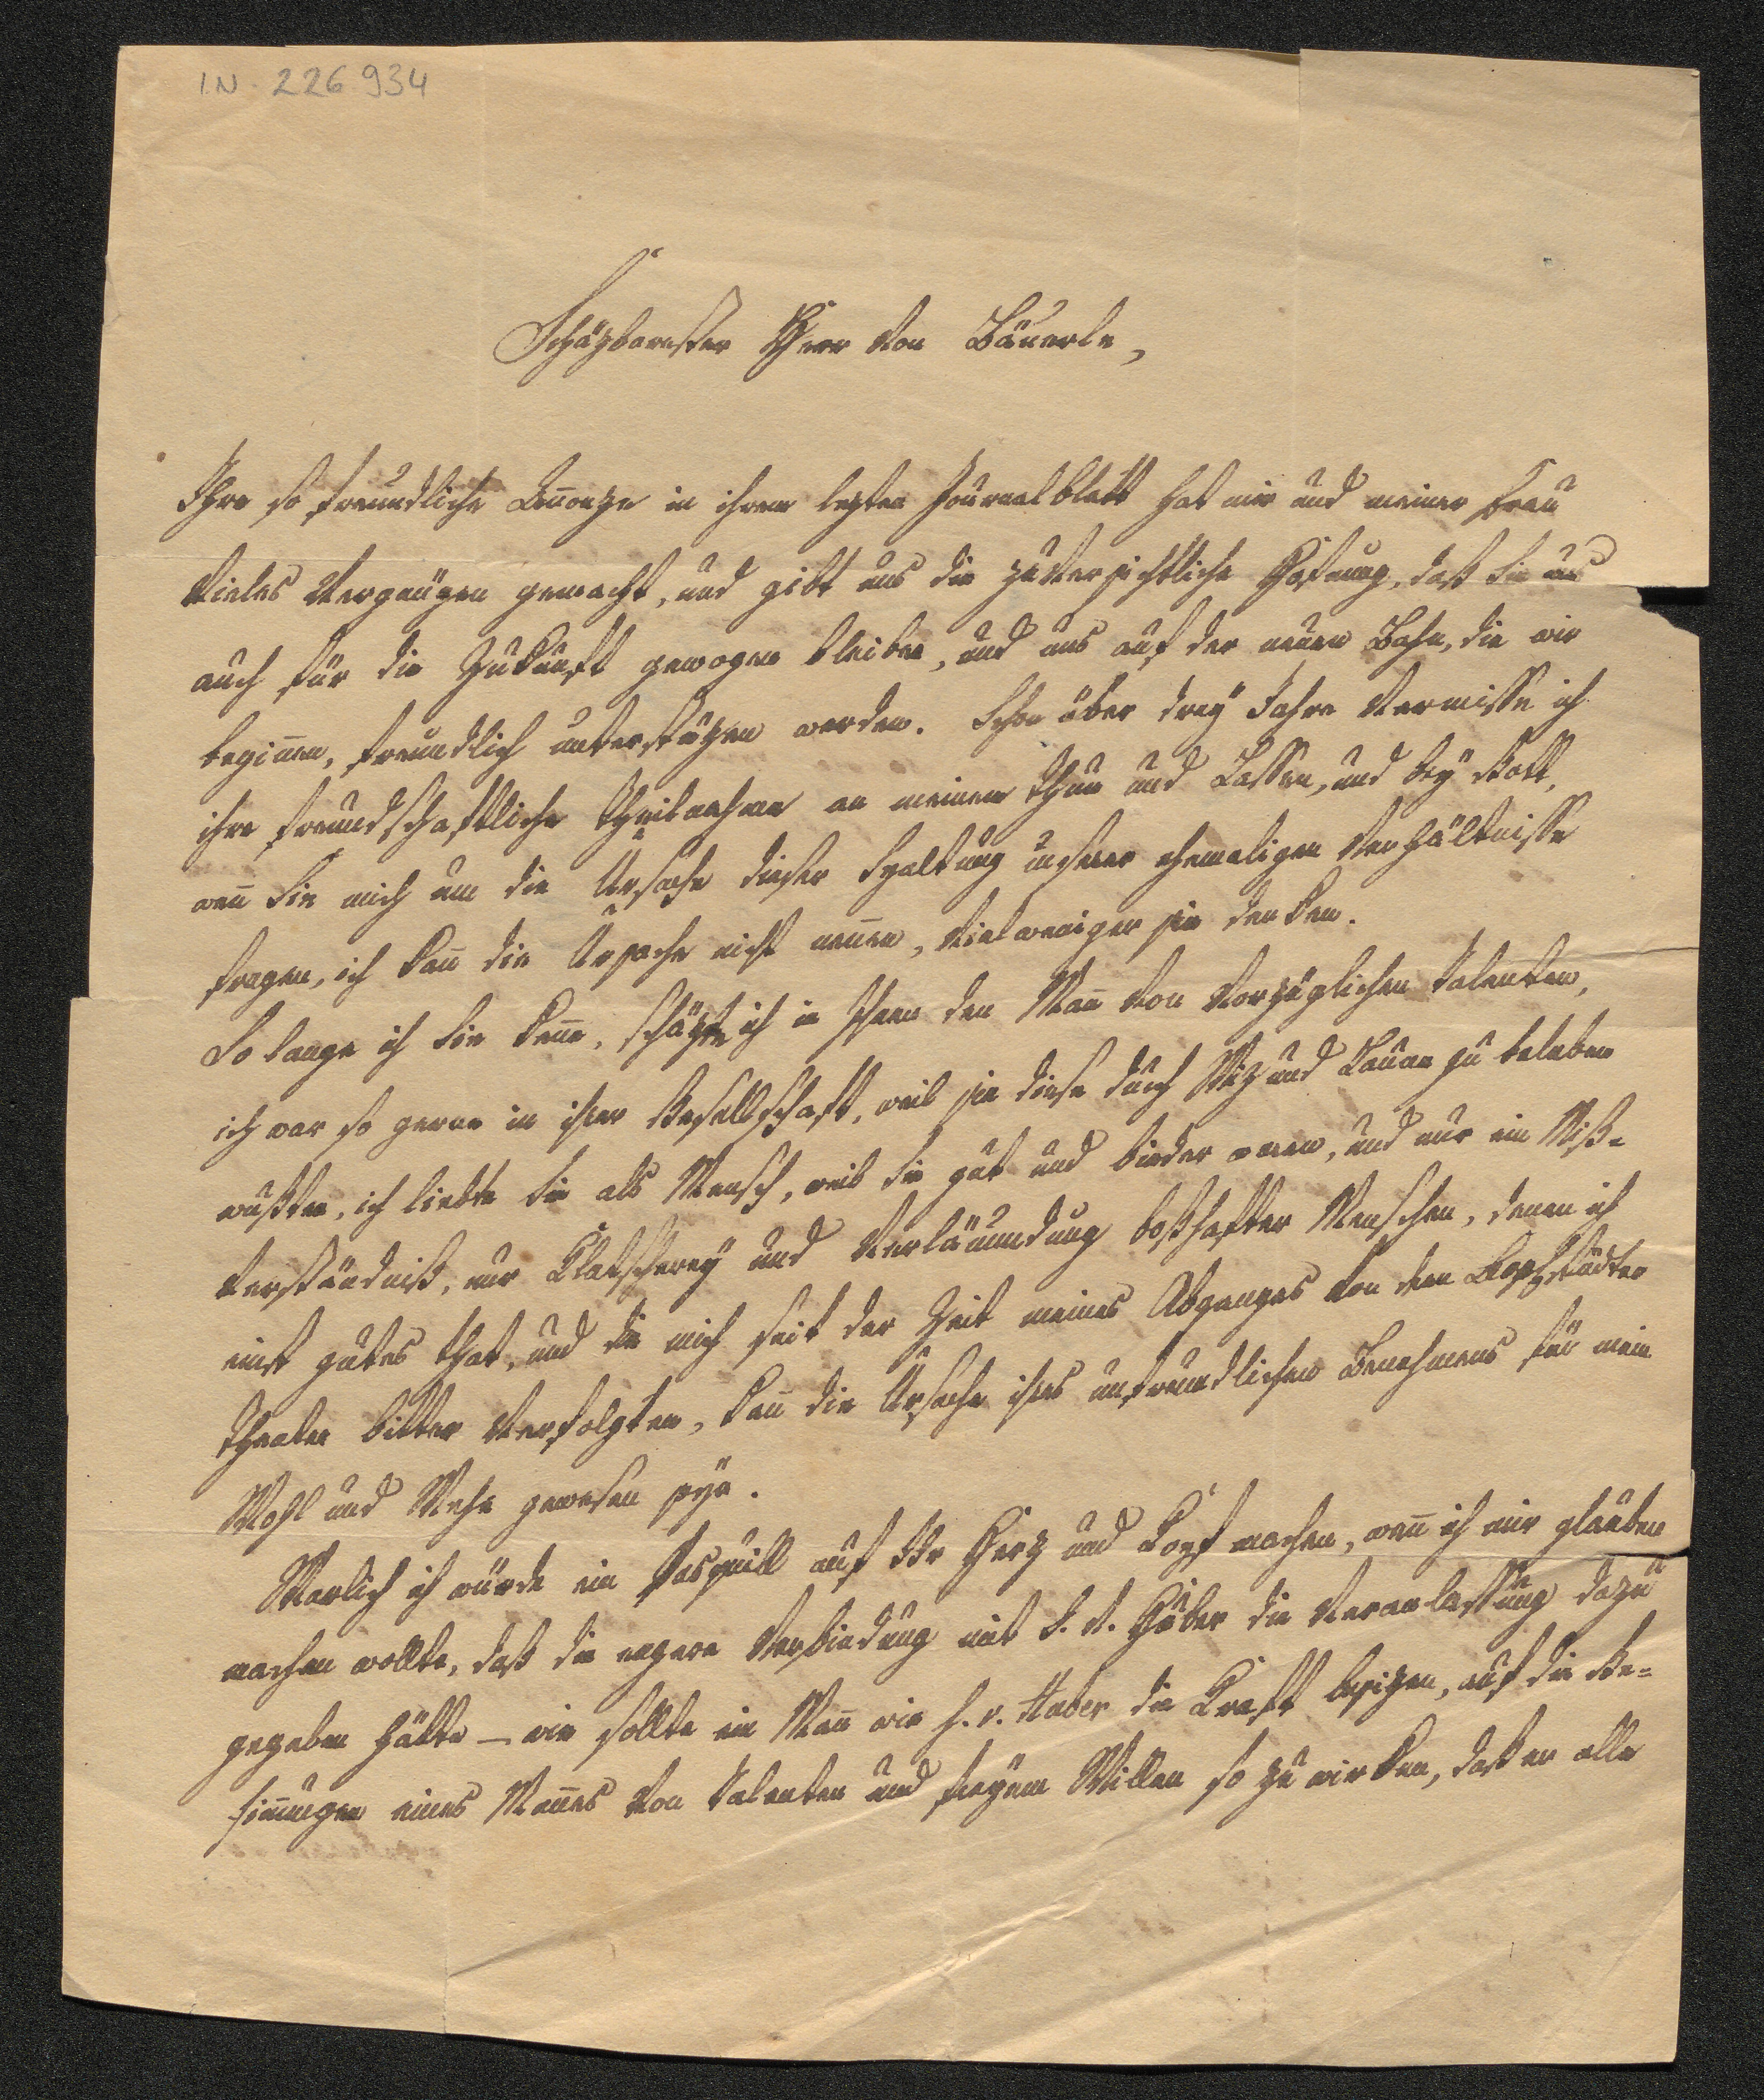 I.N. 226.934
Schäzbarester Herr von Bäuerle,
Ihre so freundliche Anonze in ihrem lezten Journalblatt hat mir und meiner Frau
vieles Vergnügen gemacht, und gibt uns die zuversichtliche Hofnung, daß Sie uns
auch für die Zukunft gewogen bleiben, und uns auf der neuen Bahn, die wir
begiñen, freundlich unterstüzen werden. Schon über drey Jahre vermisse ich
ihre freundschaftliche Theilnahme an meinem Thun und Lassen, und bey Gott,
weñ Sie mich um die Ursache dieser Spaltung unserer ehemaligen Verhältnisse
fragen, ich kañ die Ursache nicht neñen, viel weniger sie denken.
So lange ich Sie keñe, schäzte ich in Ihnen den Mañ von vorzüglichen Talenten,
ich war so gerne in ihrer Gesellschaft, weil sie diese durch Wiz und Laune zu beleben
wußten, ich liebte Sie als Mensch, weil Sie gut und bieder waren, und nur ein Miß-
verständniß, nur Klatscherey und Verläumdung boßhafter Menschen, denen ich
einst gutes that, und die mich seit der Zeit meines Abganges von dem Leopoldstädter
Theater bitter verfolgten, kañ die Ursache ihres unfreundlichen Benehmens für mein
Wohl und Wehe gewesen seyn.
Warlich ich würde ein Pasquill auf Ihr Herz und Kopf machen, weñ ich mir glauben
machen wollte, daß die engere Verbindung mit H. v. Huber die Veranlassung dazu
gegeben hätte – wie sollte ein Mañ wie H. v. Huber die Kraft besizen, auf die Ge-
siñungen eines Mañes von Talenten und freyem Willen so zu wirken, daß er alle